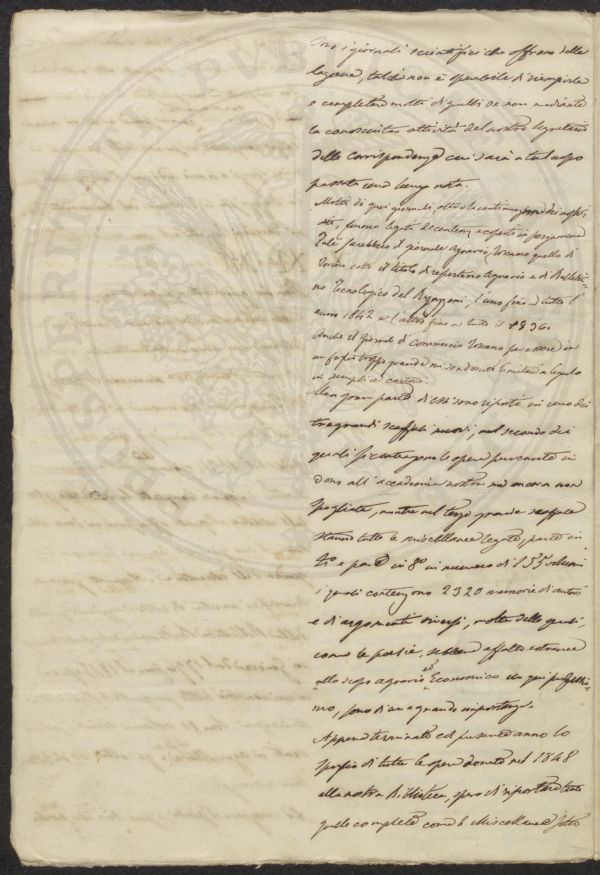 tra i giornali scientifici che offrono delle
lagune, talché non è sperabile di riempirle
e completare molti di quelli se non mediante
la conosciuta attività del nostro Segretario
delle Corrispondenze cui sarà a tal uopo
passata una lunga nota.
Molti de quei giornali, oltre a la continuazione dei nostri
Atti, furono legati decentemente e coperti in pergamena
Tali sarebbero il giornale Agrario Toscano quello di
Torino sotto il titolo di repertorio Agrario e il Bulletti-
no Tecnologico del l'uno fino a tutto l'
anno 1842 e l'altro fino a tutto il 1836.
Anche il Giornale di Commercio Toscano per essere in
un foglio troppo grande mi son dovuto limitare a legarlo
in semplice cartone.
Una gran parte di essi sono riposti in uno dei
tre grandi scaffali nuovi, nel secondo dei
quali si contengono le opere pervenute in
dono all'accademia nostra ma ancora non
spogliate, mentre nel terzo grande scaffale
stanno tutte le miscellanee legate, parte in
4° e parte in 8° in numero di 155 volumi
i quali contengono 2320 memorie di autori
e di argomenti diversi, molte delle quali,
come le poesie, sebbene affatto estranee
allo scopo agrario ed Economico
mo, sono di una grande importanza.
Appena terminato col presente anno lo
spoglio di tutte le opere donate nel 1848
alla nostra Biblioteca, spero di riportare tanto
quelle complete come le Miscellanee sotto